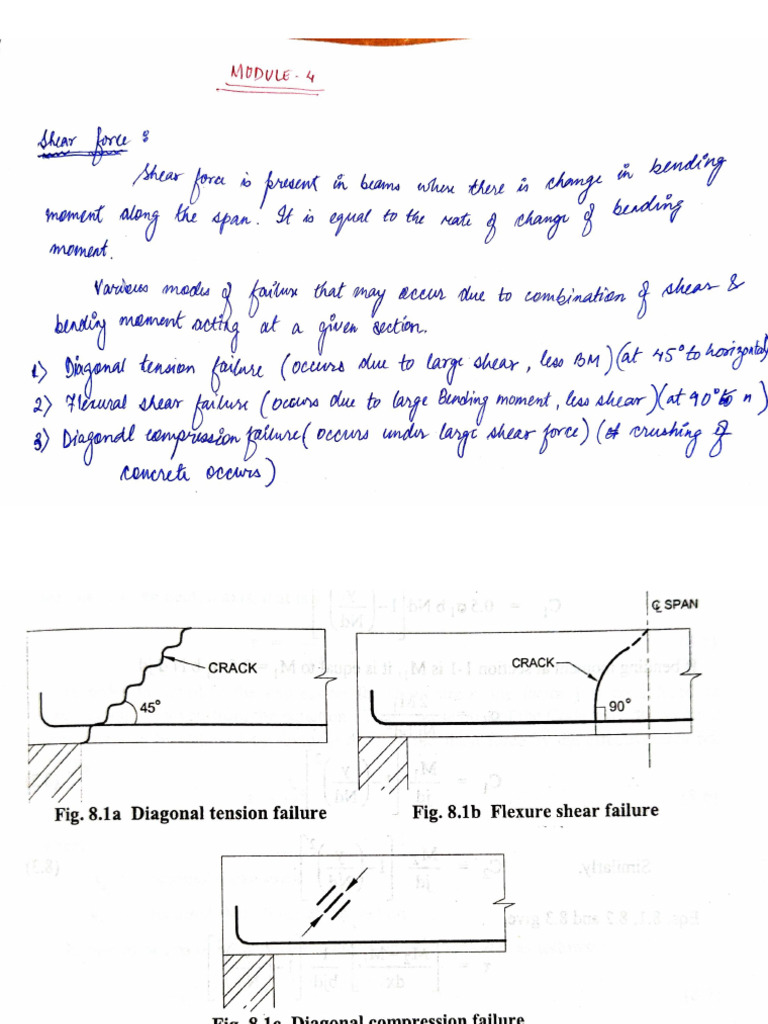 MODULE-4
Shear force :
Shear force is present in beams where there is change in bending
moment along the span. It is equal to the rate of change of bending
moment.
Various modes of failure that may occur due to combination of shear &
bending moment acting at a given section.
1) Diagonal tension failure (occurs due to large shear, less BM) (at 45° to horizontal)
2) Flexural shear failure (occurs due to large Bending moment, less shear) (at 90° to n)
3) Diagonal compression failure (occurs under large shear force) ( crushing of
concrete occurs)
℄ SPAN
CRACK
45°
CRACK
90°
Fig. 8.1a Diagonal tension failure
Fig. 8.1b Flexure shear failure
Fig. 8.1c Diagonal compression failure